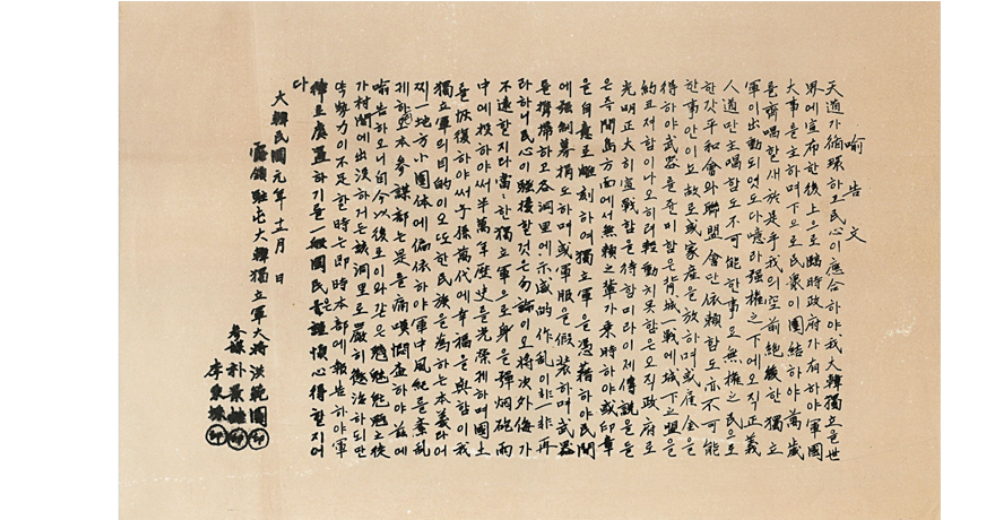 喻告文
天道가循環하고民心이應合하야我大韓獨立을世
界에宣布한後上으로臨時政府가有하야軍國
大事를主하며下으로民衆이團結하야萬歲
를齊唱할새於是乎我의空前絶後한獨立
軍이出動되엿도다噫라强權之下에오직正義
人道만主唱함도不可能한事오無權之民으로
한갓平和會와聯盟會만依賴함도亦不可能
한事안이요故로或家産을放하며或座金을
得하야武器를準備함은背城一戰에城下之盟을
約코저함이나오히려輕動치못함은오직政府로
光明正大히宣戰함을待함미라이제傳說을듣
은즉間島方面에서無賴之輩가乘時하야或印章
을自意로雕刻하여獨立軍을憑藉하야民間
에强制募捐도하며或軍服을假裝하며武器
를携帶하고各洞里에示威的作乱이非一非再
라하니民心이騷擾할것은勿論이오將次外侮가
不遠할지라當當한獨立軍으로身을彈烟砲雨
中에投하야써半萬年歷史를光榮케하며國土
를恢復하야써子孫萬代에幸福을與함이我
獨立軍의目的이오또한民族을爲하는本義라어
찌一地方小團体에偏依하야軍中風紀를紊乱
케하고本參謀部는是를痛嘆憫
喻告하오니自今以後로이와갓은魑魅魍魎之徒
가村閭에出沒하거든該洞里로嚴히懲治하되만
약勢力이不足할時는即時本部에報告하야軍
律로處置하기를一般國民은謹愼心得할지어
다
大韓民國元年十二月 日
露領駐屯大韓獨立軍大將洪範圖 印
參謀朴景喆 印
李秉垛 印